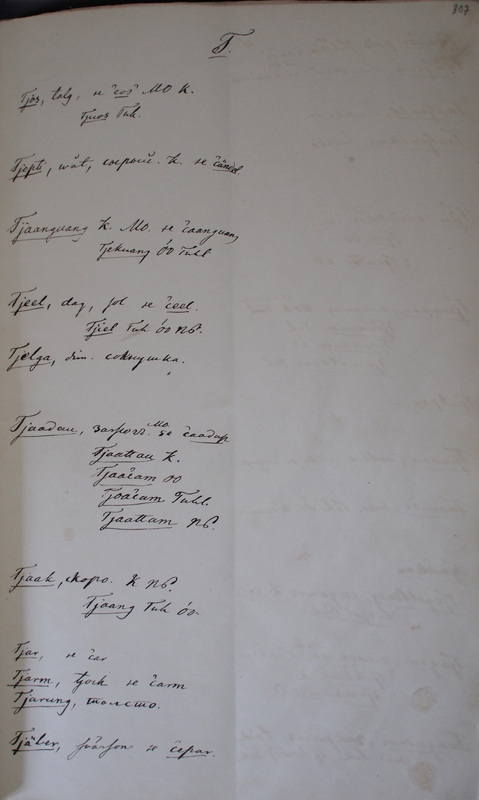 307
T.
Tjos, talg, se čos MO K.
Tjuos Tuh.
Tjepti, wåt, сырой. K. se
Tjaanguang K. MO. se čaanguang
Tjekuang óo Tuhl
Tjeel, dag, sol se čeel.
Tjiel Tuh óo NP.
Tjelga, dim. солнушка.
Tjaadam, MO. se čaadap
Tjaattau K.
Tjaačam oo
Tjoačam Tuhl.
Tjaattam NP.
Tjaak, скоро. K NP.
Tjaang Tuh óo
Tjar, se čar
Tjarm, tjock se čarm
Tjarung, толсто.
Tjäber, se čepar.